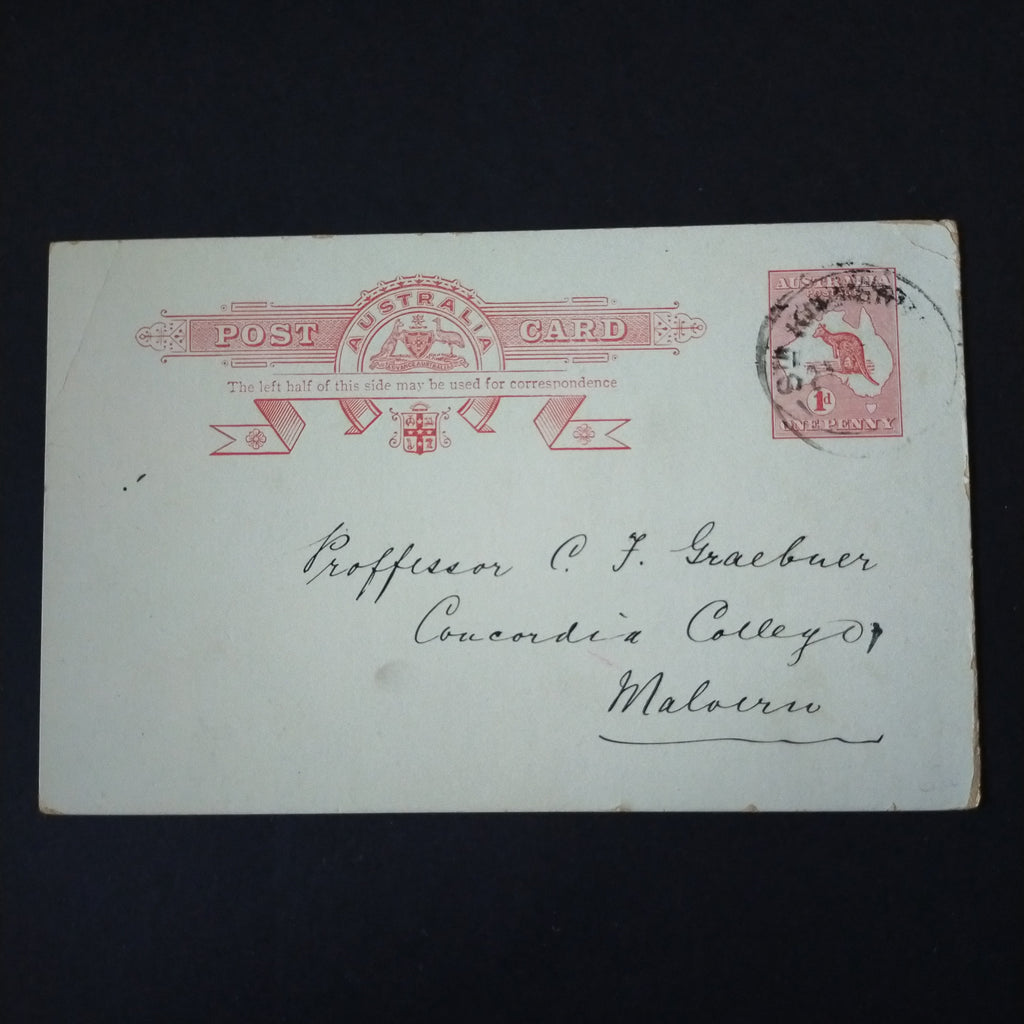 AUSTRALIA
POST CARD
ADVANCE AUSTRALIA
The left half of this side may be used for correspondence
AUSTRALIA
1d
ONE PENNY
Proffessor C. F. Graebner
Concordia College,
Malvern